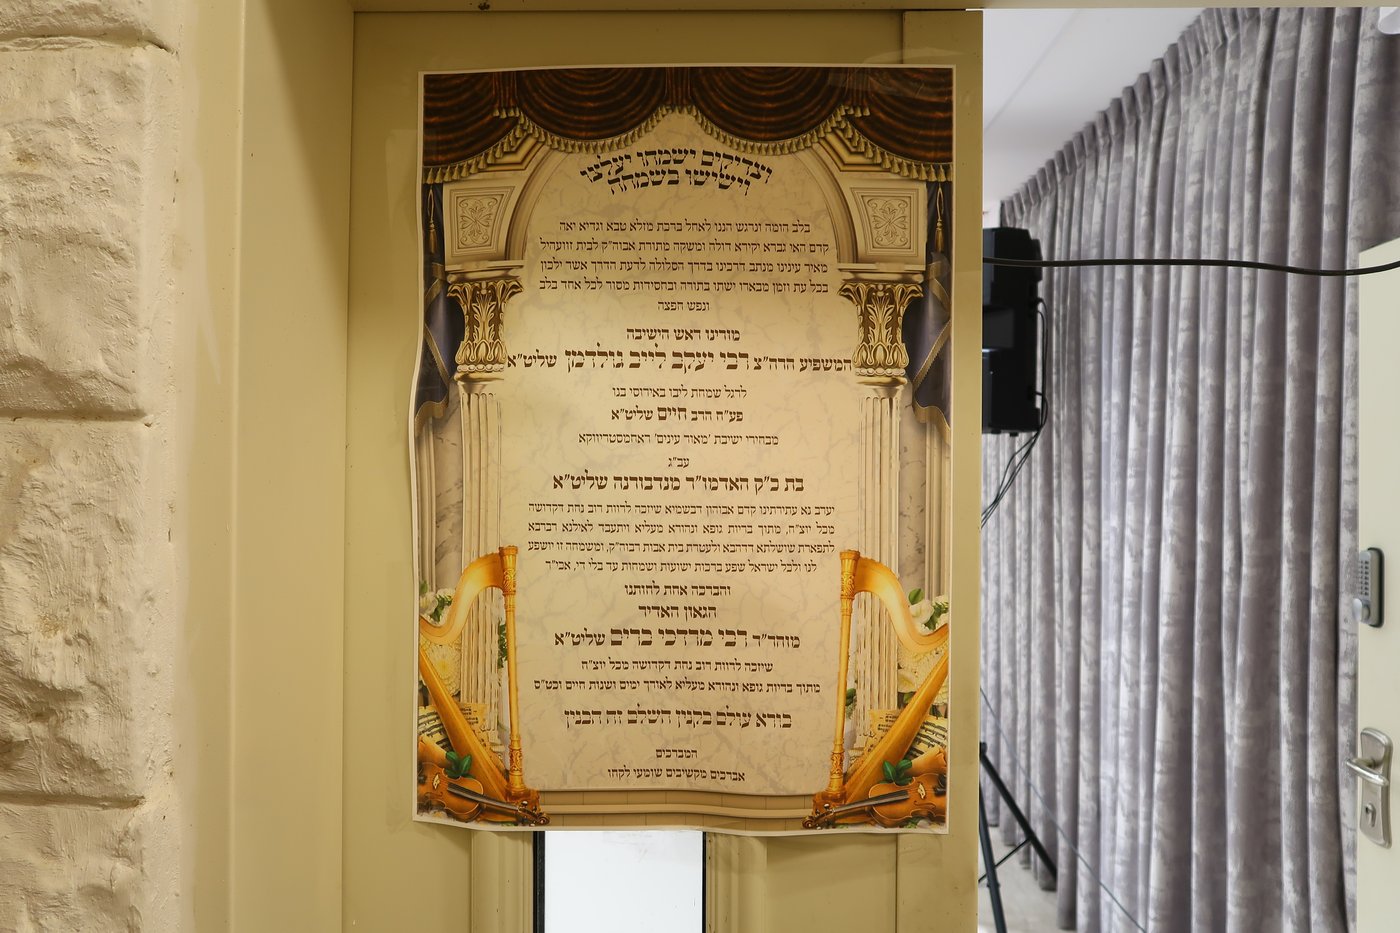 וצדיקים ישמחו יעלצו
וישישו בשמחה
בלב חומה ונרגש הננו לאחל ברכת מזלא טבא וגדיא יאה
קדם האי גברא יקירא דולה ומשקה מתורת אבוה"ק לבית זוועהיל
מאיר עינינו מנתב דרכינו בדרך הסלולה לדעת הדרך אשר ילכון
בכל עת וזמן מבארו ישתו בתורה ובחסידות מסור לכל אחד בלב
ונפש חפצה
מורינו ראש הישיבה
המשפיע הרה"צ רבי יעקב לייב גולדמן שליט"א
לרגל שמחת ליבו באירוסי בנו
פע"ח הרב חיים שליט"א
מבחירי ישיבת 'מאור עינים' ראחמסטריווקא
עב"ג
בת כ"ק האדמו"ר מנדבורנה שליט"א
יערב נא עתירתינו קדם אבוהון דבשמיא שיזכה לרוות רוב נחת דקדושה
מכל יוצ"ח, מתוך בריות גופא ונהורא מעליא ויתעבד לאילנא רברבא
לתפארת שושלתא דדהבא ולעטרת בית אבות רבוה"ק, ומשמחה זו יושפע
לנו ולכל ישראל שפע ברכות ישועות ושמחות עד בלי די, אכי"ר
והברכה אחת לחותנו
הגאון האדיר
מוהר"ר רבי מרדכי ברים שליט"א
שיזכה לרוות רוב נחת דקדושה מכל יוצ"ח
מתוך בריות גופא ונהורא מעליא לאורך ימים ושנות חיים וכט"ס
בורא עולם בקנין השלם זה הבנין
המברכים
אברכים מקשיבים שומעי לקחו